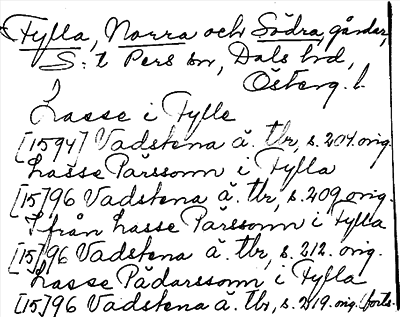 Fylla, Norra och Södra, gårdar,
S:t Pers sn, Dals hd,
Österg. l.
Lasse i Fylle
[1594] Vadstena ä. tb, s. 204. orig.
Lasse Pärssonn i Fylla
[15]96 Vadstena ä. tb, s. 209 orig.
Ifrån Lasse Pärssonn i Fylla
[15]96 Vadstena ä. tb, s. 212. orig.
Lasse Pädarssonn i Fylla
[15]96 Vadstena ä. tb, s. 219. orig. (forts.